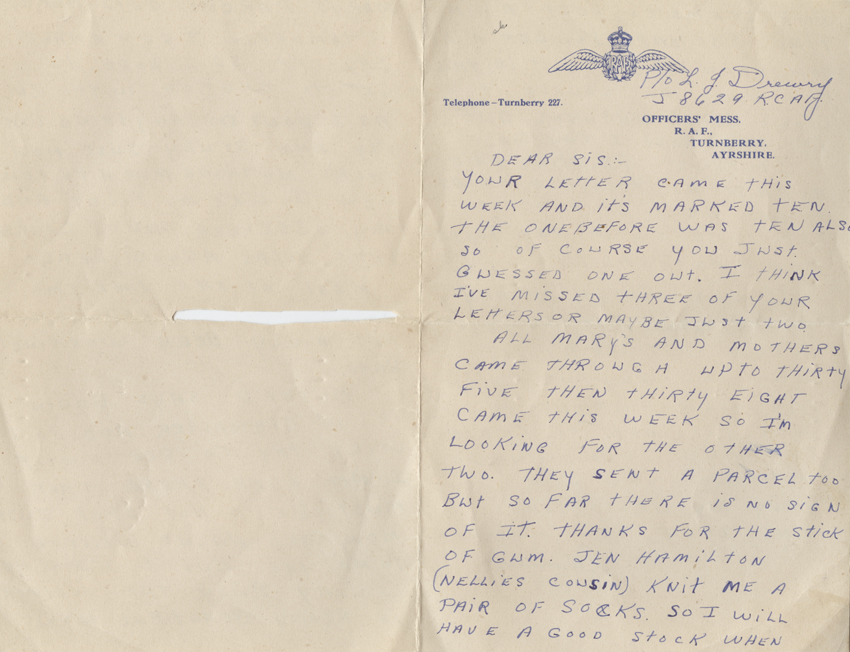 RAF
P/O L. J. Drewry
J 8629 RCAF.
Telephone – Turnberry 227.
OFFICERS' MESS.
R. A. F.,
TURNBERRY.
AYRSHIRE.
DEAR SIS:-
YOUR LETTER CAME THIS
WEEK AND IT'S MARKED TEN.
THE ONE BEFORE WAS TEN ALSO
SO OF COURSE YOU JUST
GUESSED ONE OUT. I THINK
I'VE MISSED THREE OF YOUR
LETTERS OR MAYBE JUST TWO
ALL MARY'S AND MOTHERS
CAME THROUGH UPTO THIRTY
FIVE THEN THIRTY EIGHT
CAME THIS WEEK SO I'M
LOOKING FOR THE OTHER
TWO. THEY SENT A PARCEL TOO
BUT SO FAR THERE IS NO SIGN
OF IT. THANKS FOR THE STICK
OF GUM. JEN HAMILTON
(NELLIES COUSIN) KNIT ME A
PAIR OF SOCKS. SO I WILL
HAVE A GOOD STOCK WHEN